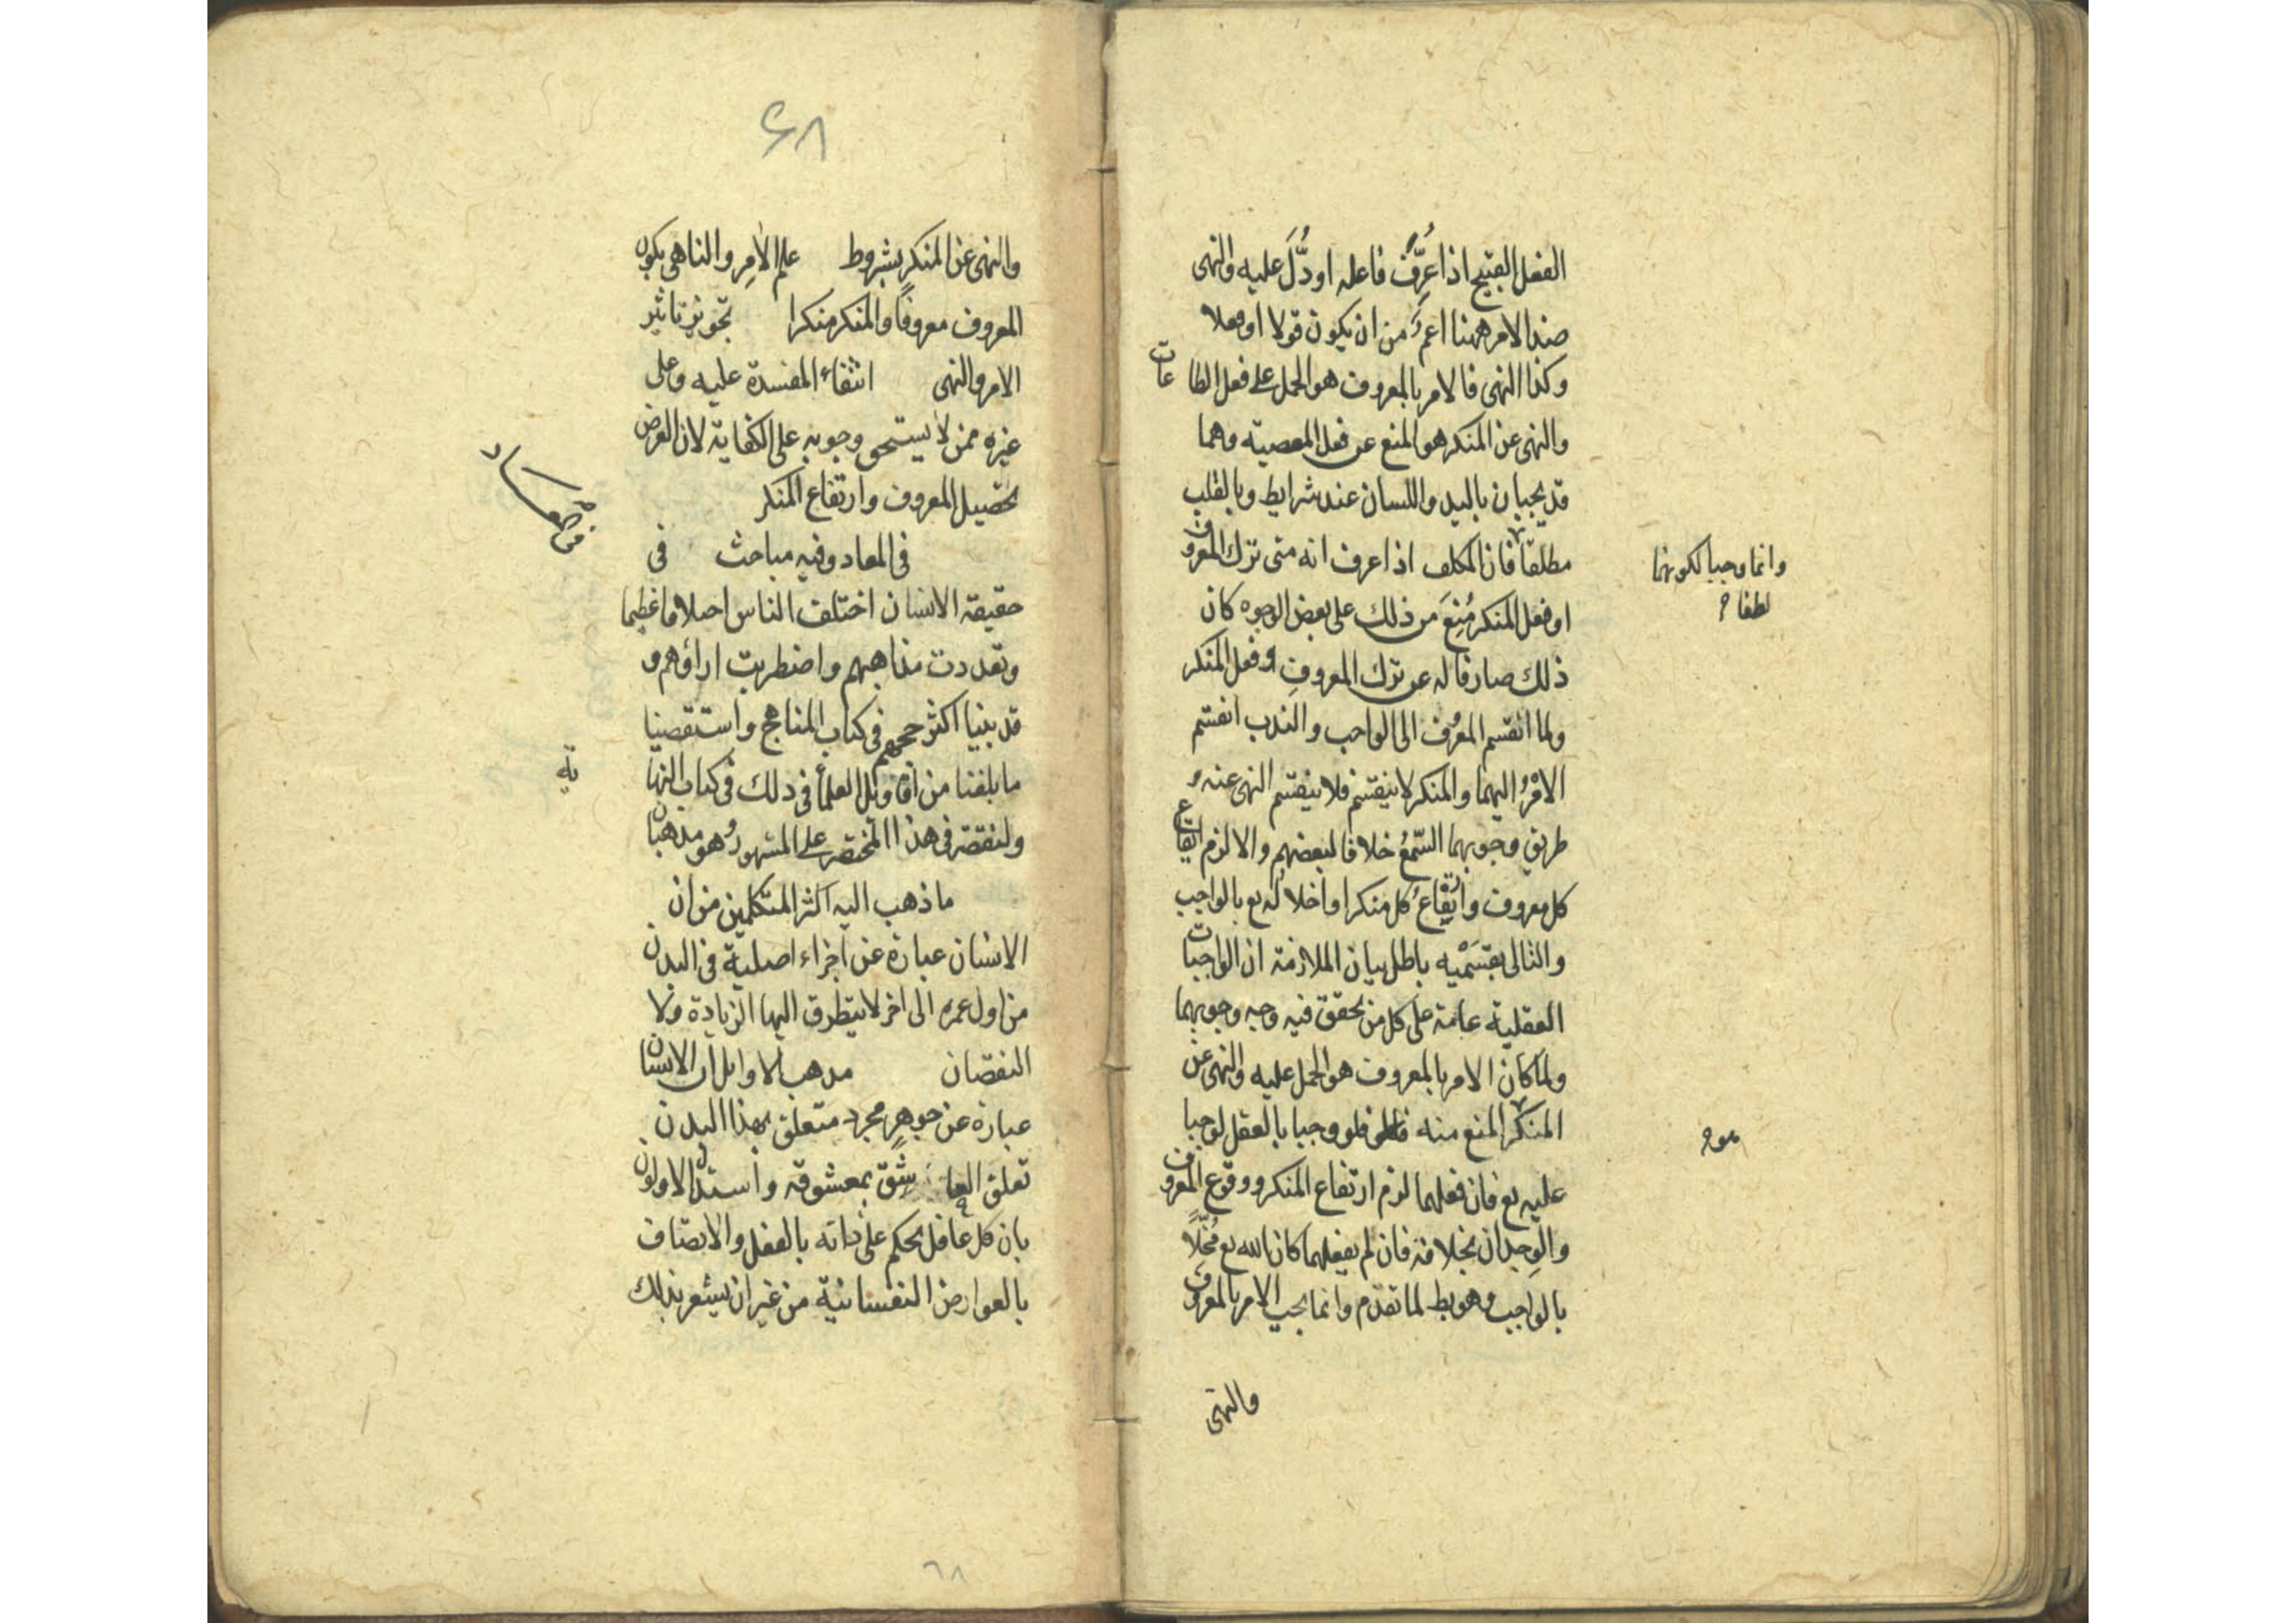 الفعل القبيح اذا عُرِّفَ فاعله او دُلَّ عليه والنهى
ضد الامر ههنا اعم من ان يكون قولا او فعلا
وكذا النهى فالامر بالمعروف هو الحمل على فعل الطاعات
والنهى عن المنكر هو المنع عن فعل المعصية وهما
قد يجبان باليد واللسان عند شرايط وبالقلب
مطلقا فان المكلف اذا عرف انه متى ترك المعروف
وانما وجبا لكونهما
لطفا
او فعل المنكر مُنِعَ من ذلك على بعض الوجوه كان
ذلك صارفا له عن ترك المعروفِ او فعل المنكر
ولما انقسم المعروف الى الواجب والندب انقسم
الامْرُ اليهما والمنكر لا ينقسم فلا ينقسم النهى عنه و
طريق وجوبهما السّمعُ خلافا لبعضهم والا لزم ايقاع
كل معروف وارتفاعُ كل منكر او اخلاله تع بالواجب
والتالى بقسَمْيه باطل بيان الملازمة ان الواجبات
العقلية عامة على كل من تحقق فيه وجه وجوبهما
ولما كان الامر بالمعروف هو الحمل عليه والنهى عن
المنكر المنع منه فلو وجبا بالعقل لوجبا
عليه تع فان فعلهما لزم ارتفاع المنكر ووقوع المعروف
والوجدان بخلافه فان لم يفعلهما كان الله تع مُخلًّا
بالواجب وهو بط لما تقدم وانما يجب الامر بالمعروف
والنهى
۶۸
والنهى عن المنكر بشروط علم الامِر والناهى بكون
المعروف معروفًا والمنكر منكرا تجويز تاثير
الامر والنهى انتفاء المفسدة عليه وعلى
غيره ممن لا يستحق وجوبه على الكفاية لان الغرض
تحصيل المعروف وارتفاع المنكر
فى المعاد وفيه مباحث فى
حقيقة الانسان اختلف الناس اختلافا عظيما
وتعددت مذاهبهم واضطربت اراؤهم و
قد بينا اكثر حججهم فى كتاب المناهج واستقصينا
ما بلغنا من اقاويل العلماء فى ذلك فى كتاب النهاية
ولنقتصر فى هذا المختصر على المشهور وهو مذهبان
ما ذهب اليه اكثر المتكلمين من ان
الانسان عبارة عن اجزاء اصلية فى البدن
من اول عمره الى اخر لا يتطرق اليها الزيادة ولا
النقصان مذهب الاوايل ان الانسان
عبارة عن جوهرٍ مجرد متعلق بهذا البدن
تعلق العاشق بمعشوقه واستدل الاولون
بان كل عاقل يحكم على ذاته بالفعل والاتصاف
بالعوارض النفسانية من غير ان يشعر بذلك
٦٨